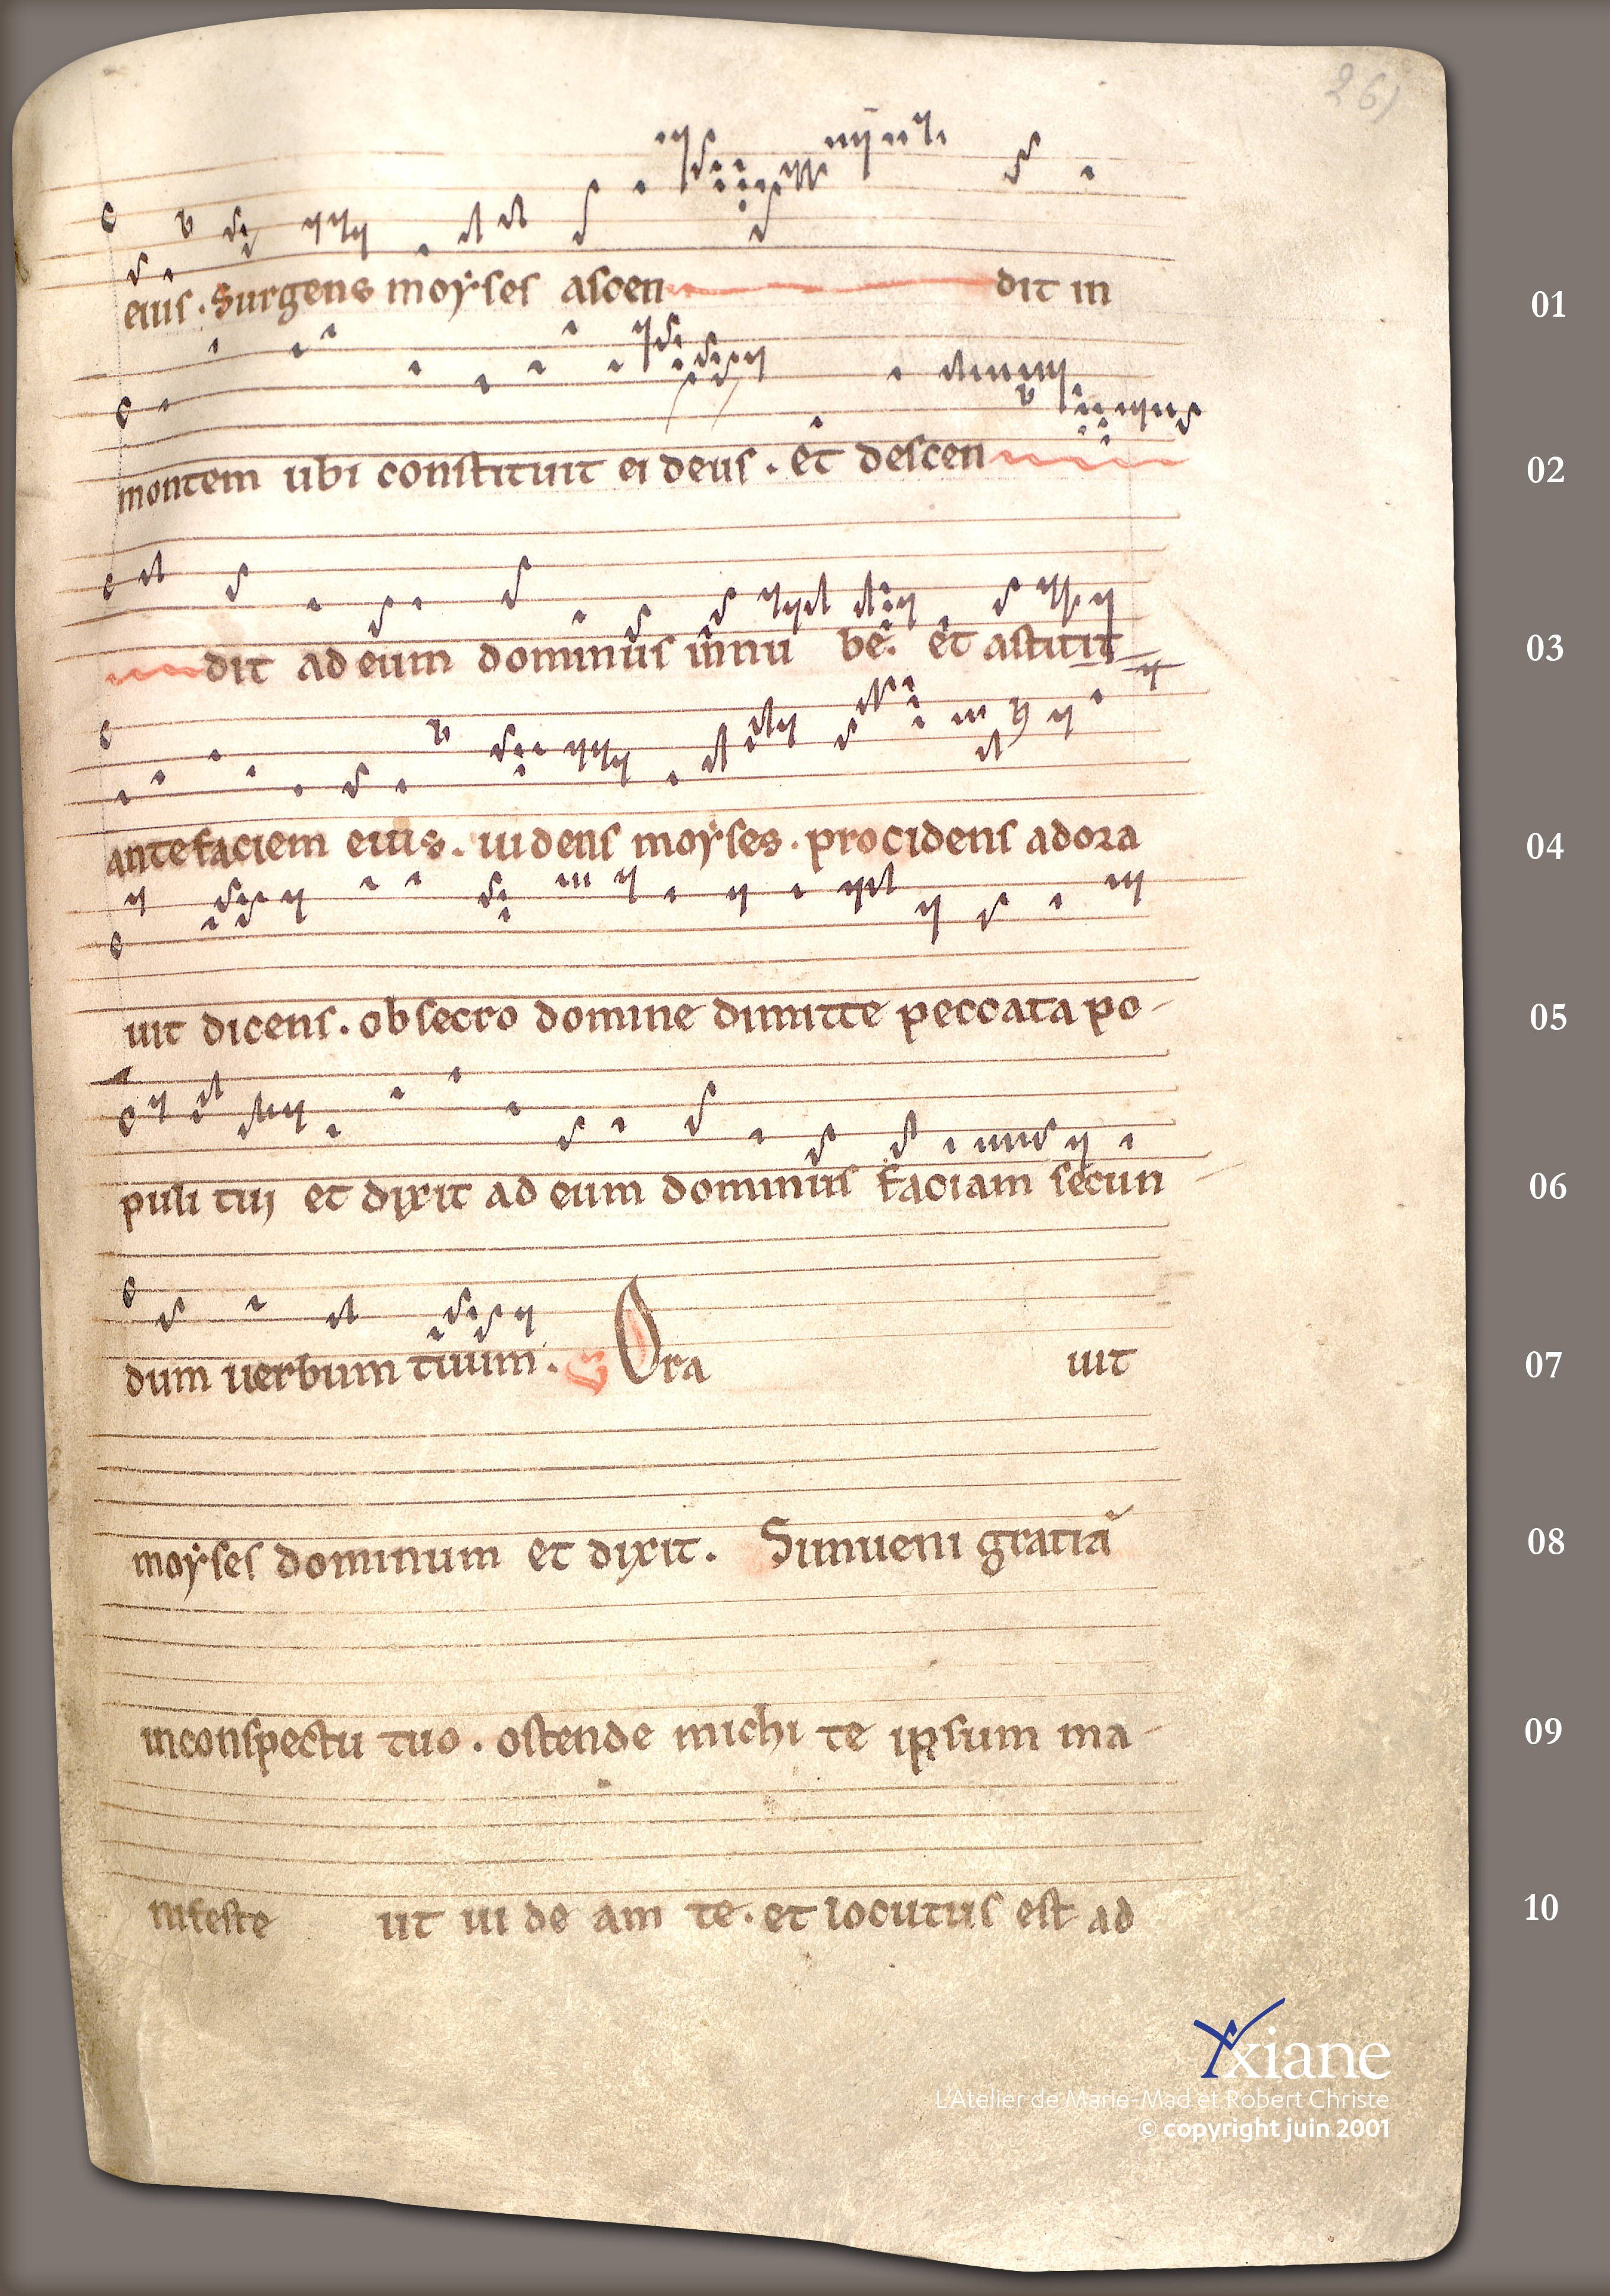 261
eius . Surgens moyses ascen dit in
01
montem ubi constituit ei deus . et descen
02
dit ad eum dominus in nu be . et astitit
03
ante faciem eius . uidens moyses . procidens adora
04
uit dicens . obsecro domine dimitte peccata po-
05
puli tui et dixit ad eum dominus faciam secun
06
dum uerbum tuum . Ora uit
07
moyses dominum et dixit . Si inueni gratiā
08
in conspectu tuo . ostende michi te ipsum ma-
09
nifeste ut ui de am te . et locutus est ad
10
xiane
L'Atelier de Marie-Mad et Robert Christe
© copyright juin 2001